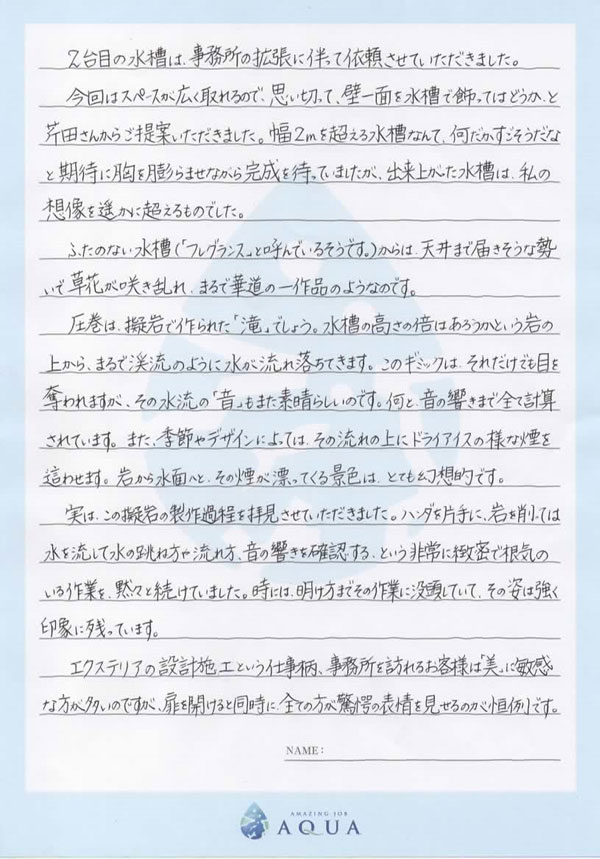 2台目の水槽は、事務所の拡張に伴って依頼させていただきました。
今回はスペースが広く取れるので、思い切って、壁一面を水槽で飾ってはどうか、と
芹田さんからご提案いただきました。幅2mを超える水槽なんて、何だかすごそうだな
と期待に胸を膨らませながら完成を待っていましたが、出来上がった水槽は、私の
想像を遥かに超えるものでした。
ふたのない水槽(「フレグランス」と呼んでいるそうです。)からは、天井まで届きそうな勢
いで草花が咲き乱れ、まるで華道の一作品のようなのです。
圧巻は、擬岩で作られた「滝」でしょう。水槽の高さの倍はあろうかという岩の
上から、まるで渓流のように水が流れ落ちてきます。このギミックは、それだけでも目を
奪われますが、その水流の「音」もまた素晴らしいのです。何と、音の響きまで全て計算
されています。また、季節やデザインによっては、その流れの上にドライアイスの様な煙を
這わせます。岩から水面へと、その煙が漂ってくる景色は、とても幻想的です。
実は、この擬岩の製作過程を拝見させていただきました。ハンダを片手に、岩を削っては
水を流して水の跳ね方や流れ方、音の響きを確認する、という非常に緻密で根気の
いる作業を、黙々と続けていました。時には、明け方までその作業に没頭していて、その姿は強く
印象に残っています。
エクステリアの設計施工という仕事柄、事務所を訪れるお客様は「美」に敏感
な方が多いのですが、扉を開けると同時に、全ての方が驚愕の表情を見せるのが恒例です。
NAME:
AMAZING JOB
AQUA